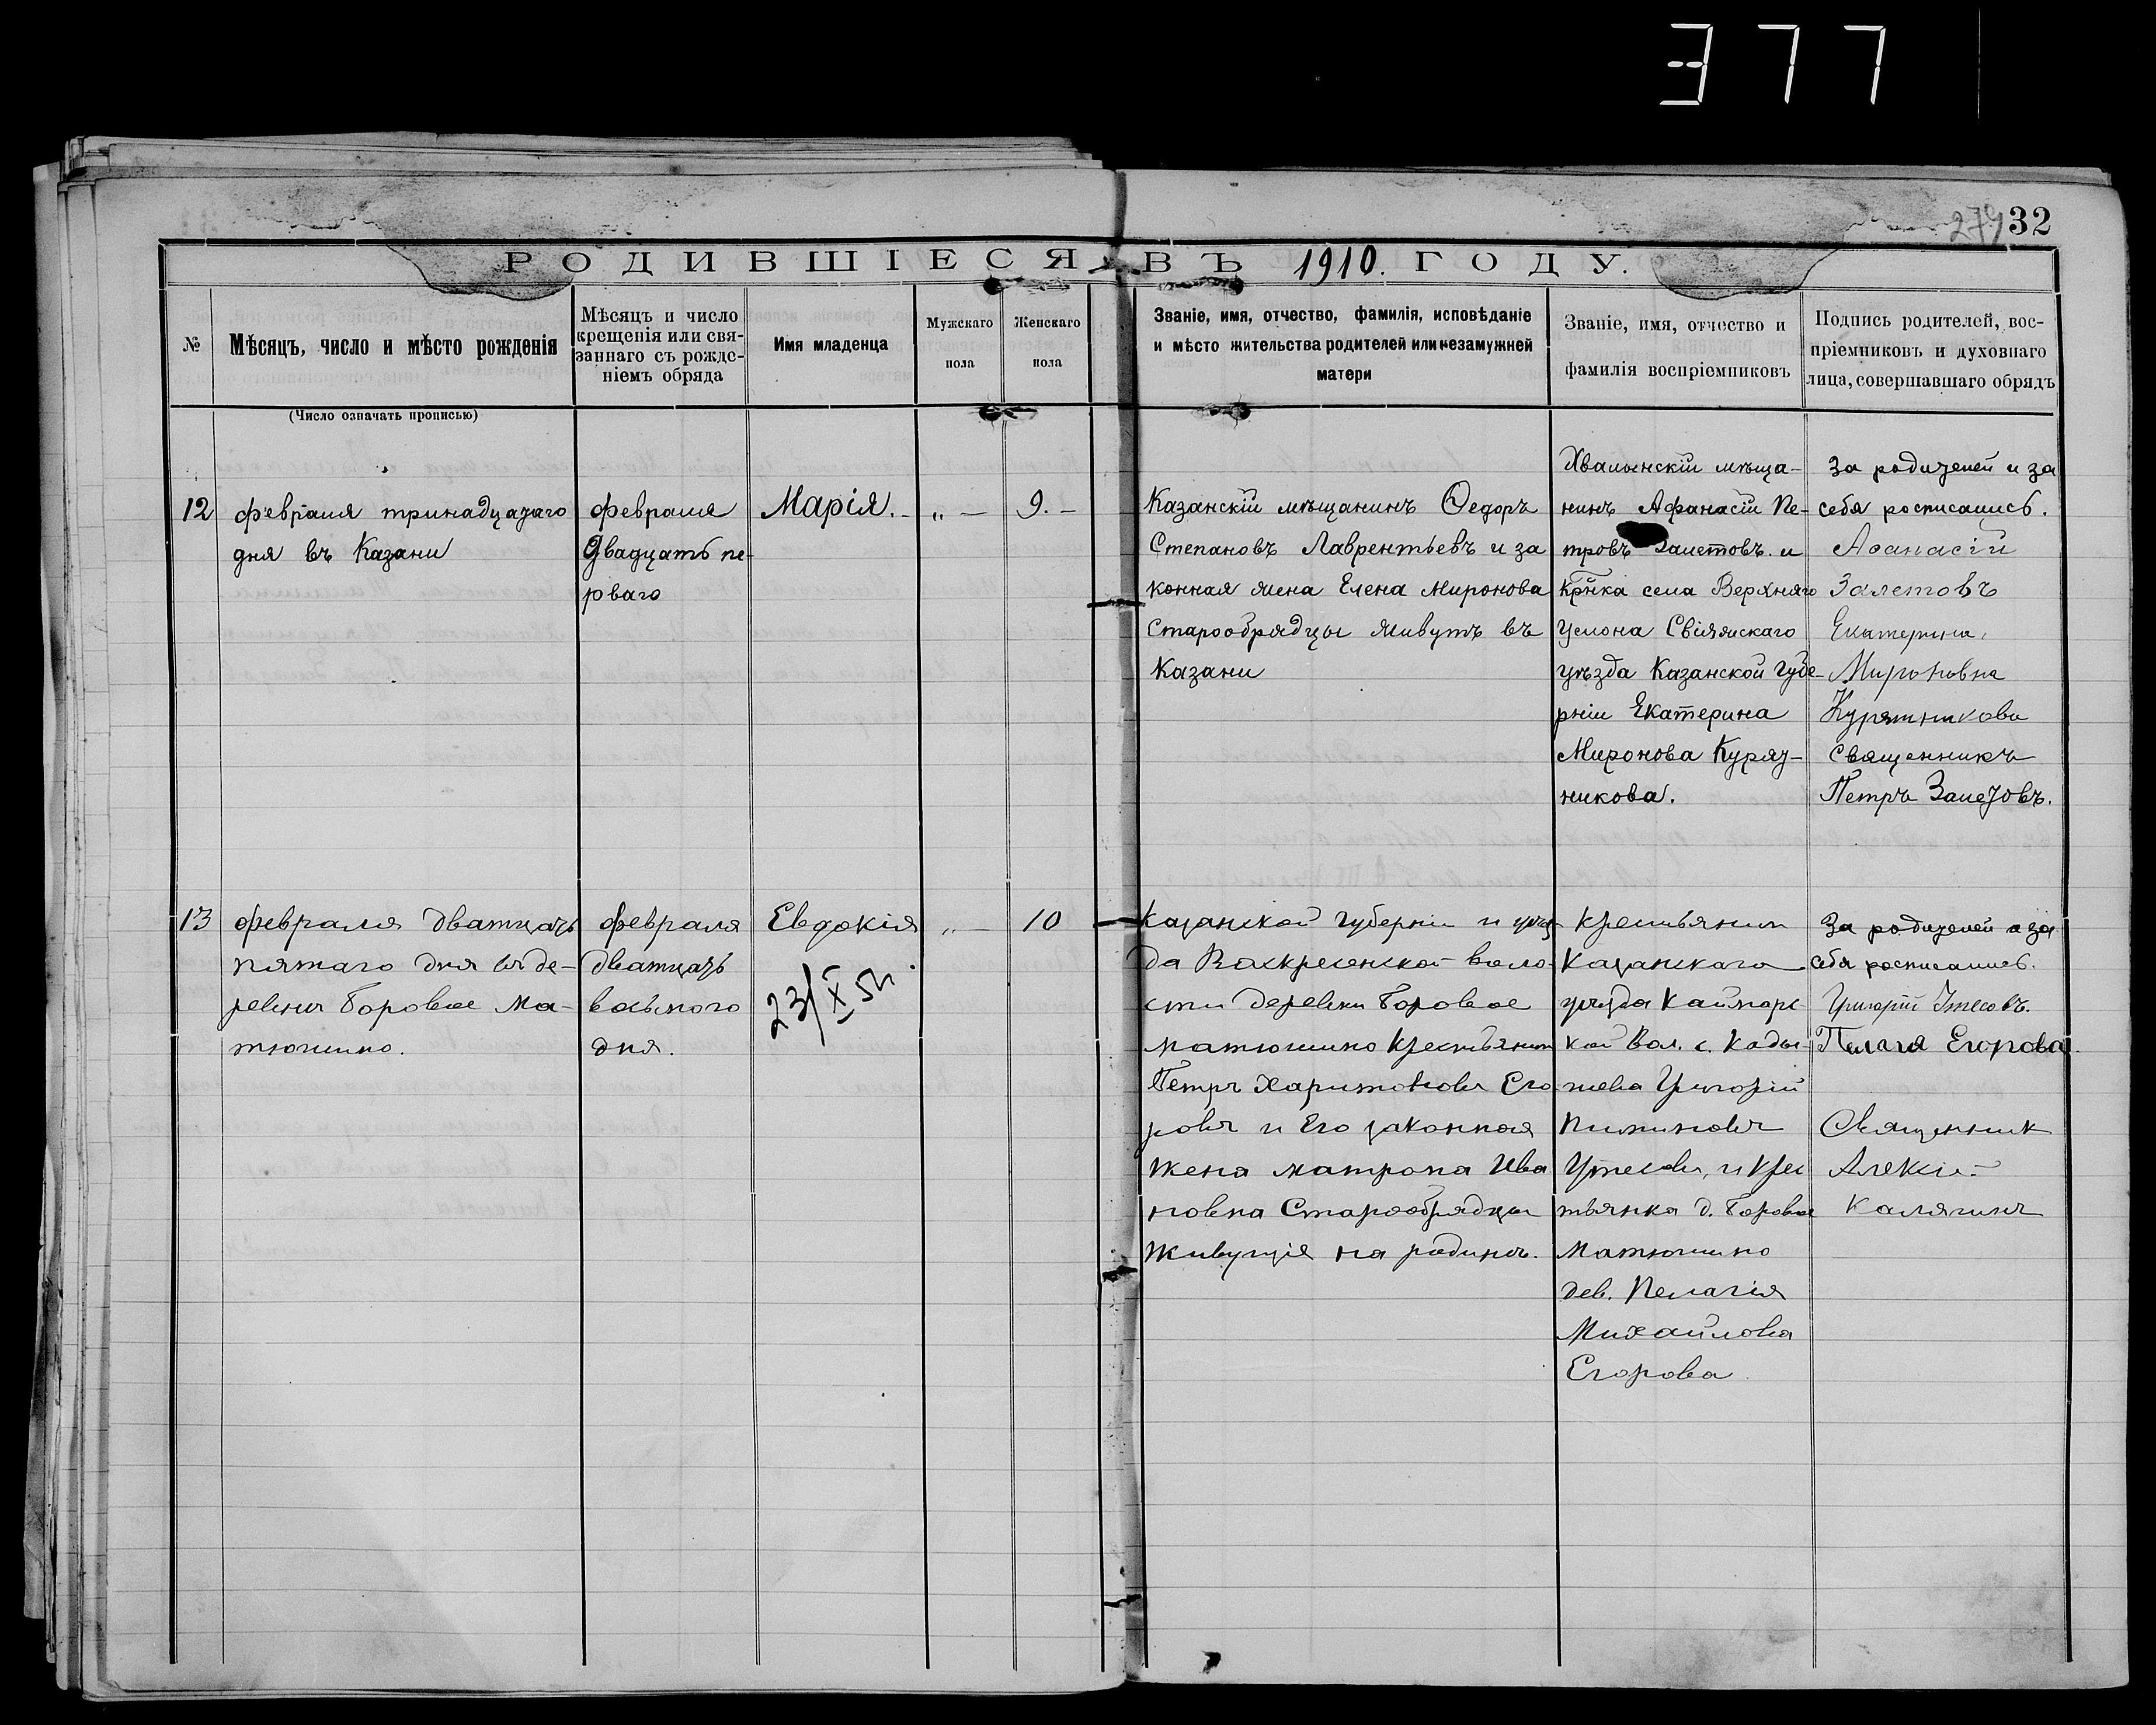 377
279 32
РОДИВШІЕСЯ ВЪ 1910. ГОДУ.
№
Мѣсяцъ, число и мѣсто рожденія
(Число означать прописью)
Мѣсяцъ и число
крещенія или свя-
заннаго съ рожде-
ніемъ обряда
Имя младенца
Мужскаго
пола
Женскаго
пола
Званіе, имя, отчество, фамилія, исповѣданіе
и мѣсто жительства родителей или незамужней
матери
Званіе, имя, отчество и
фамилія воспріемниковъ
Подпись родителей, вос-
пріемниковъ и духовнаго
лица, совершавшаго обрядъ
12
февраля тринадцатаго
дня въ Казани
февраля
Двадцать пе-
рваго
Марія.-
„ —
9. -
Казанскій мѣщанинъ Ѳедоръ
Степановъ Лаврентьевъ и за
конная жена Елена Миронова
Старообрядцы живутъ въ
Казани
Хвалынскій мѣща-
нинъ Афанасій Пе-
тровъ Залетовъ и
Крнка села Верхняго
Услона Свіяжскаго
уѣзда Казанской губе-
рніи Екатерина
Миронова Курят-
никова.
За родителей и за
себя росписались.
Аѳанасій
Залетовъ
Екатерина
Мироновна
Курятникова
Священникъ
Петръ Залетовъ.
13
февраля дватцать
пятаго дня въ де-
ревни Боровое Ма-
тюшино.
февраля
дватцать
восьмого
дня.
Евдокія
23/X 54.
„ —
10
Казанской губерніи и уѣз
да Воскресенской воло-
сти деревни Боровое
матюшино Крестьянин
Петръ Харитоновъ Его
ровъ и Его законная
жена матрона Ива
новна Старообрядцы
живущія на родинѣ.
Крестьянин
Казанскаго
уѣзда Каймарс
кой Вол. с. Кады-
шева Григорій
Пименовъ
Утесовъ, и крес
тьянка д. Боровое
Матюшино
дев. Пелагія
Михайлова
Егорова
За родителей и за
себя росписались.
Григорій Утесовъ.
Пелагя Егорова.
Священник
Алексій
Калягинъ